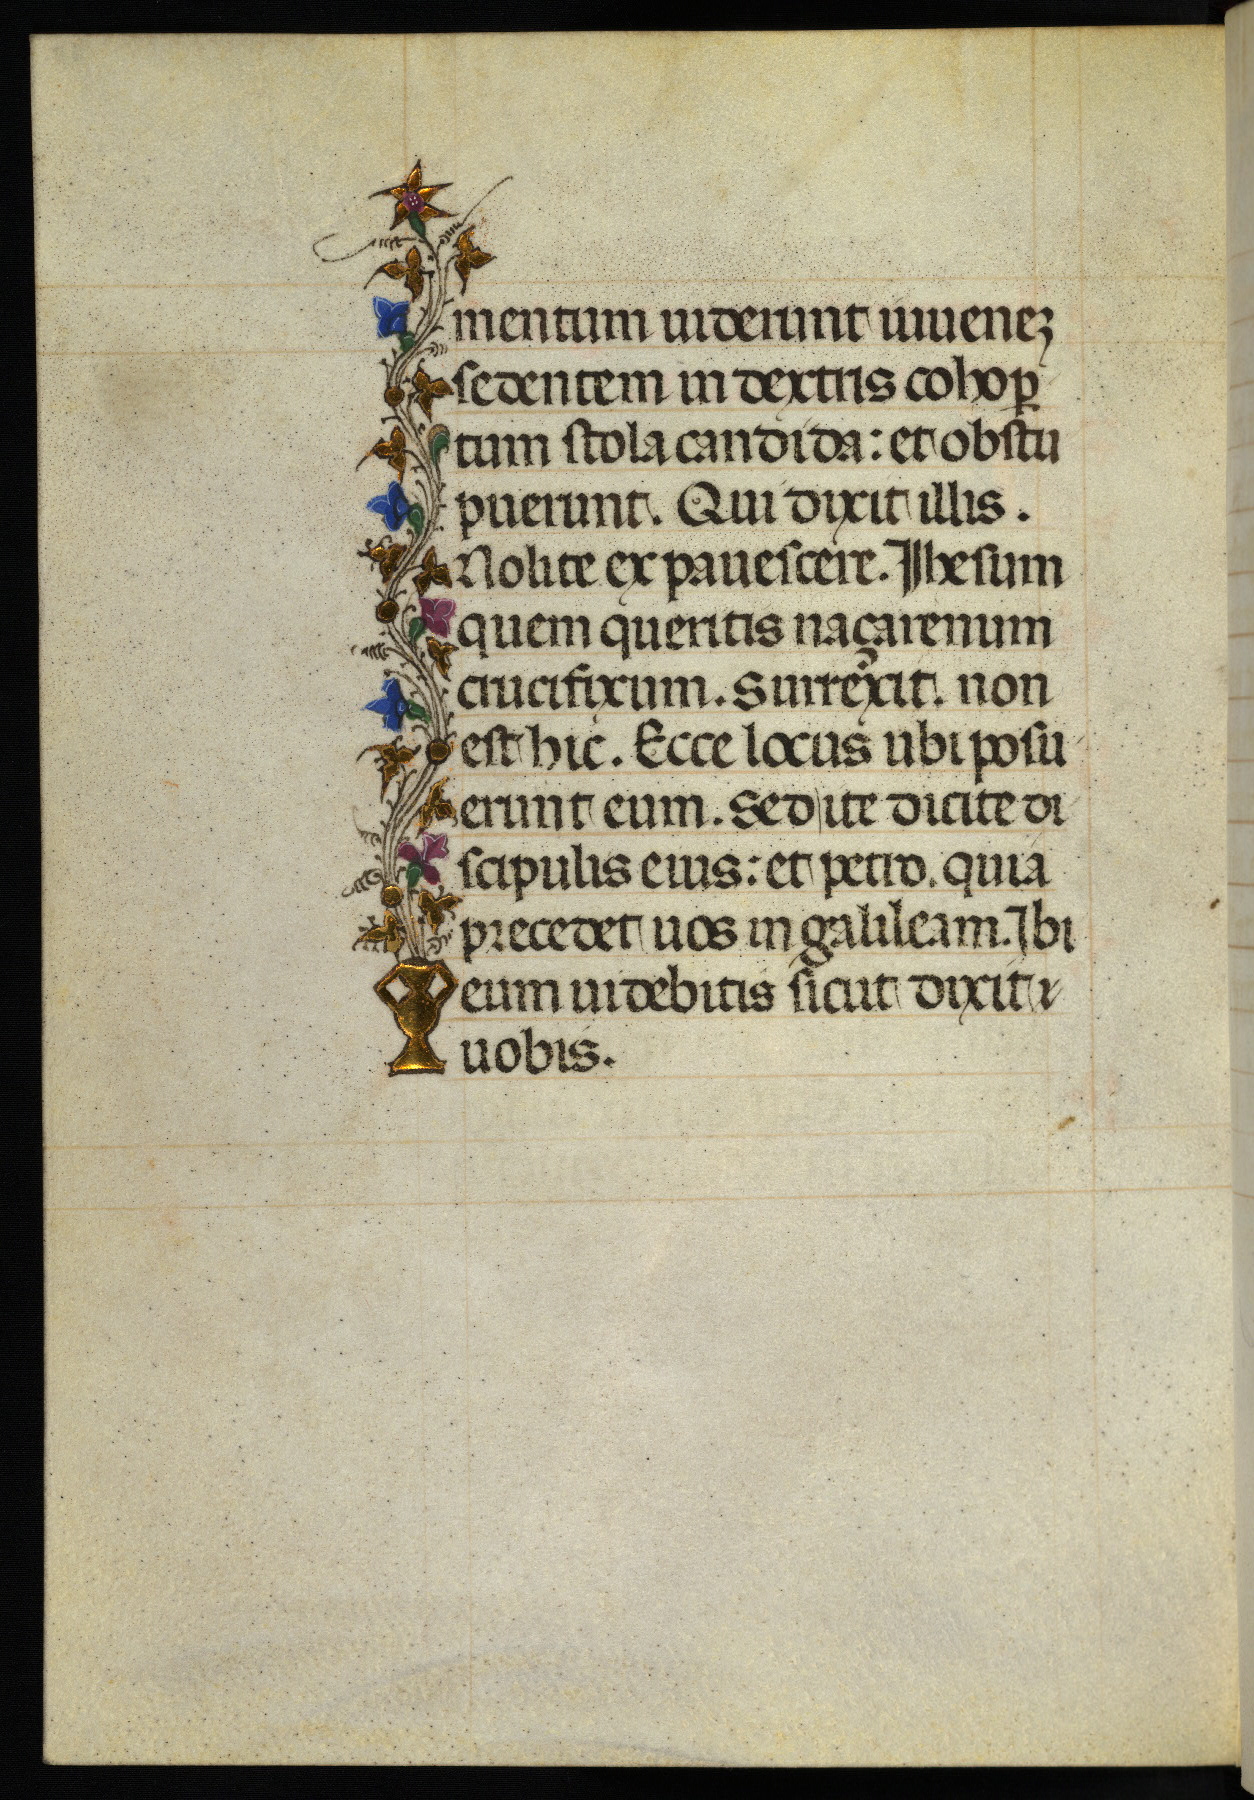 mentum uiderunt iuuenez
sedentem in dextris cohoꝑ
tum stola candida: et obstu
puerunt. Qui dixit illis.
Nolite expauescere. Jhesum
quem queritis naçarenum
crucifixum. Surrexit. non
est hic. Ecce locus ubi posu
erunt eum. Sed ite dicite di
scipulis eius: et petro. quia
precedet uos in galileam. Ibi
eum uidebitis sicut dixit
uobis.